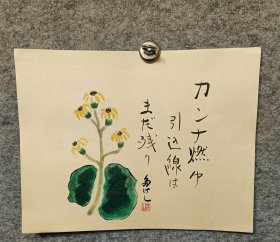 カンナ燃ゆ
引込線は
まだ残り